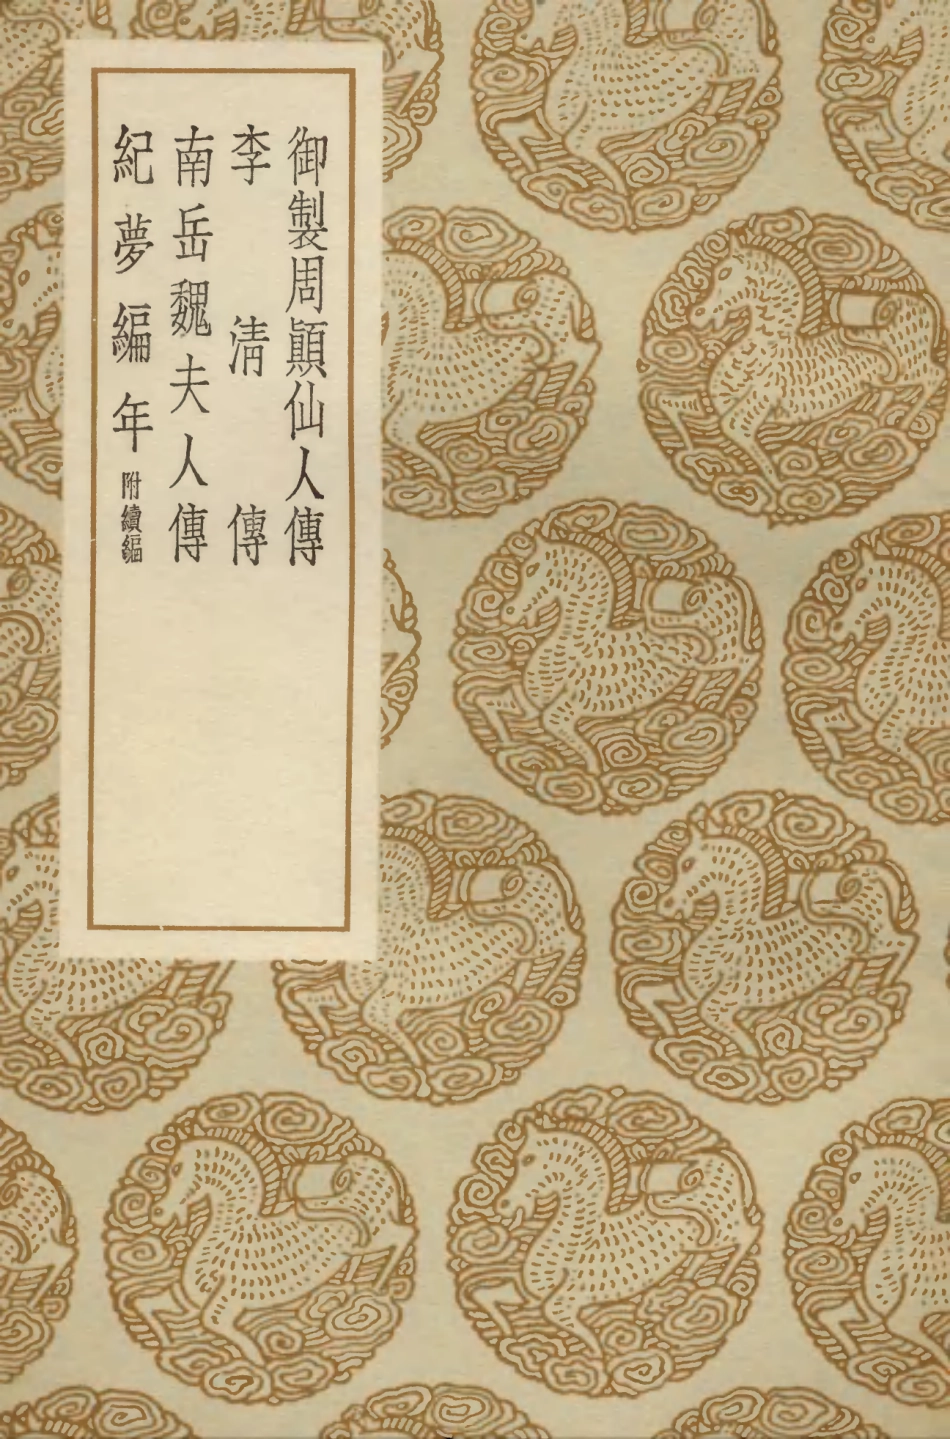 御製周顚仙人傳
李清傳
南岳魏夫人傳
紀夢編年附續編